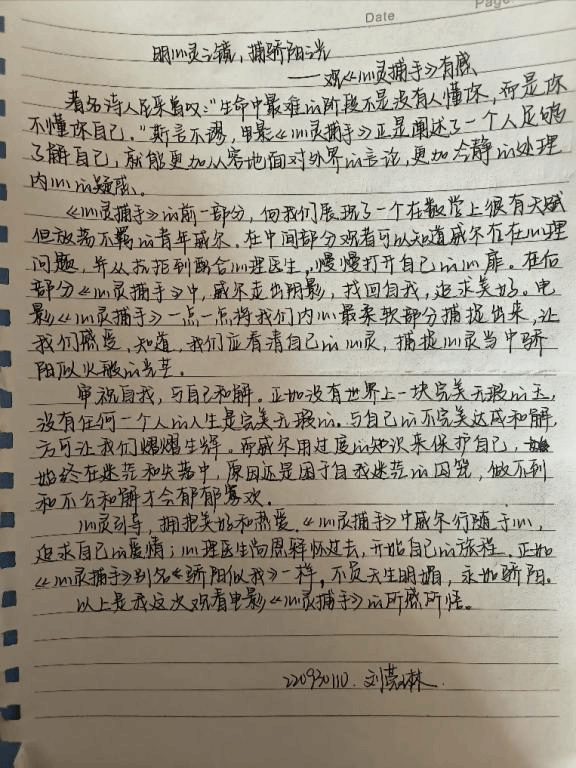 Date
Page
明心灵之镜，捕骄阳之光
——观《心灵捕手》有感
著名诗人尼采曾叹："生命中最难的阶段不是没有人懂你，而是你
不懂你自己。"斯言不谬，电影《心灵捕手》正是阐述了一个人足够
了解自己，就能更加从容地面对外界的言论，更加冷静的处理
内心的疑惑。
《心灵捕手》的前一部分，向我们展现了一个在数学上很有天赋
但放荡不羁的青年威尔。在中间部分观者可以知道威尔存在心理
问题，并从抗拒到配合心理医生，慢慢打开自己的心扉。在后
部分《心灵捕手》中，威尔走出阴影，找回自我，追求美好。电
影《心灵捕手》一点一点将我们内心最柔软部分捕捉出来，让
我们感受，知道，我们应看清自己的心灵，捕捉心灵当中骄
阳似火般的光芒。
审视自我，与自己和解。正如没有世界上一块完美无瑕的玉，
没有任何一个人的人生是完美无瑕的。与自己的不完美达成和解，
方可让我们熠熠生辉。而威尔用过度的知识来保护自己，
始终在迷茫和失落中，原因还是困于自我迷茫的囚笼，做不到
和不公和解才会郁郁寡欢。
心灵引导，拥抱美好和热爱。《心灵捕手》中威尔行随于心，
追求自己的爱情；心理医生尚恩释怀过去，开始自己的旅程。正如
《心灵捕手》别名《骄阳似我》一样，不负天生明媚，永如骄阳。
以上是我这次观看电影《心灵捕手》的所感所悟。
220930110. 刘 林